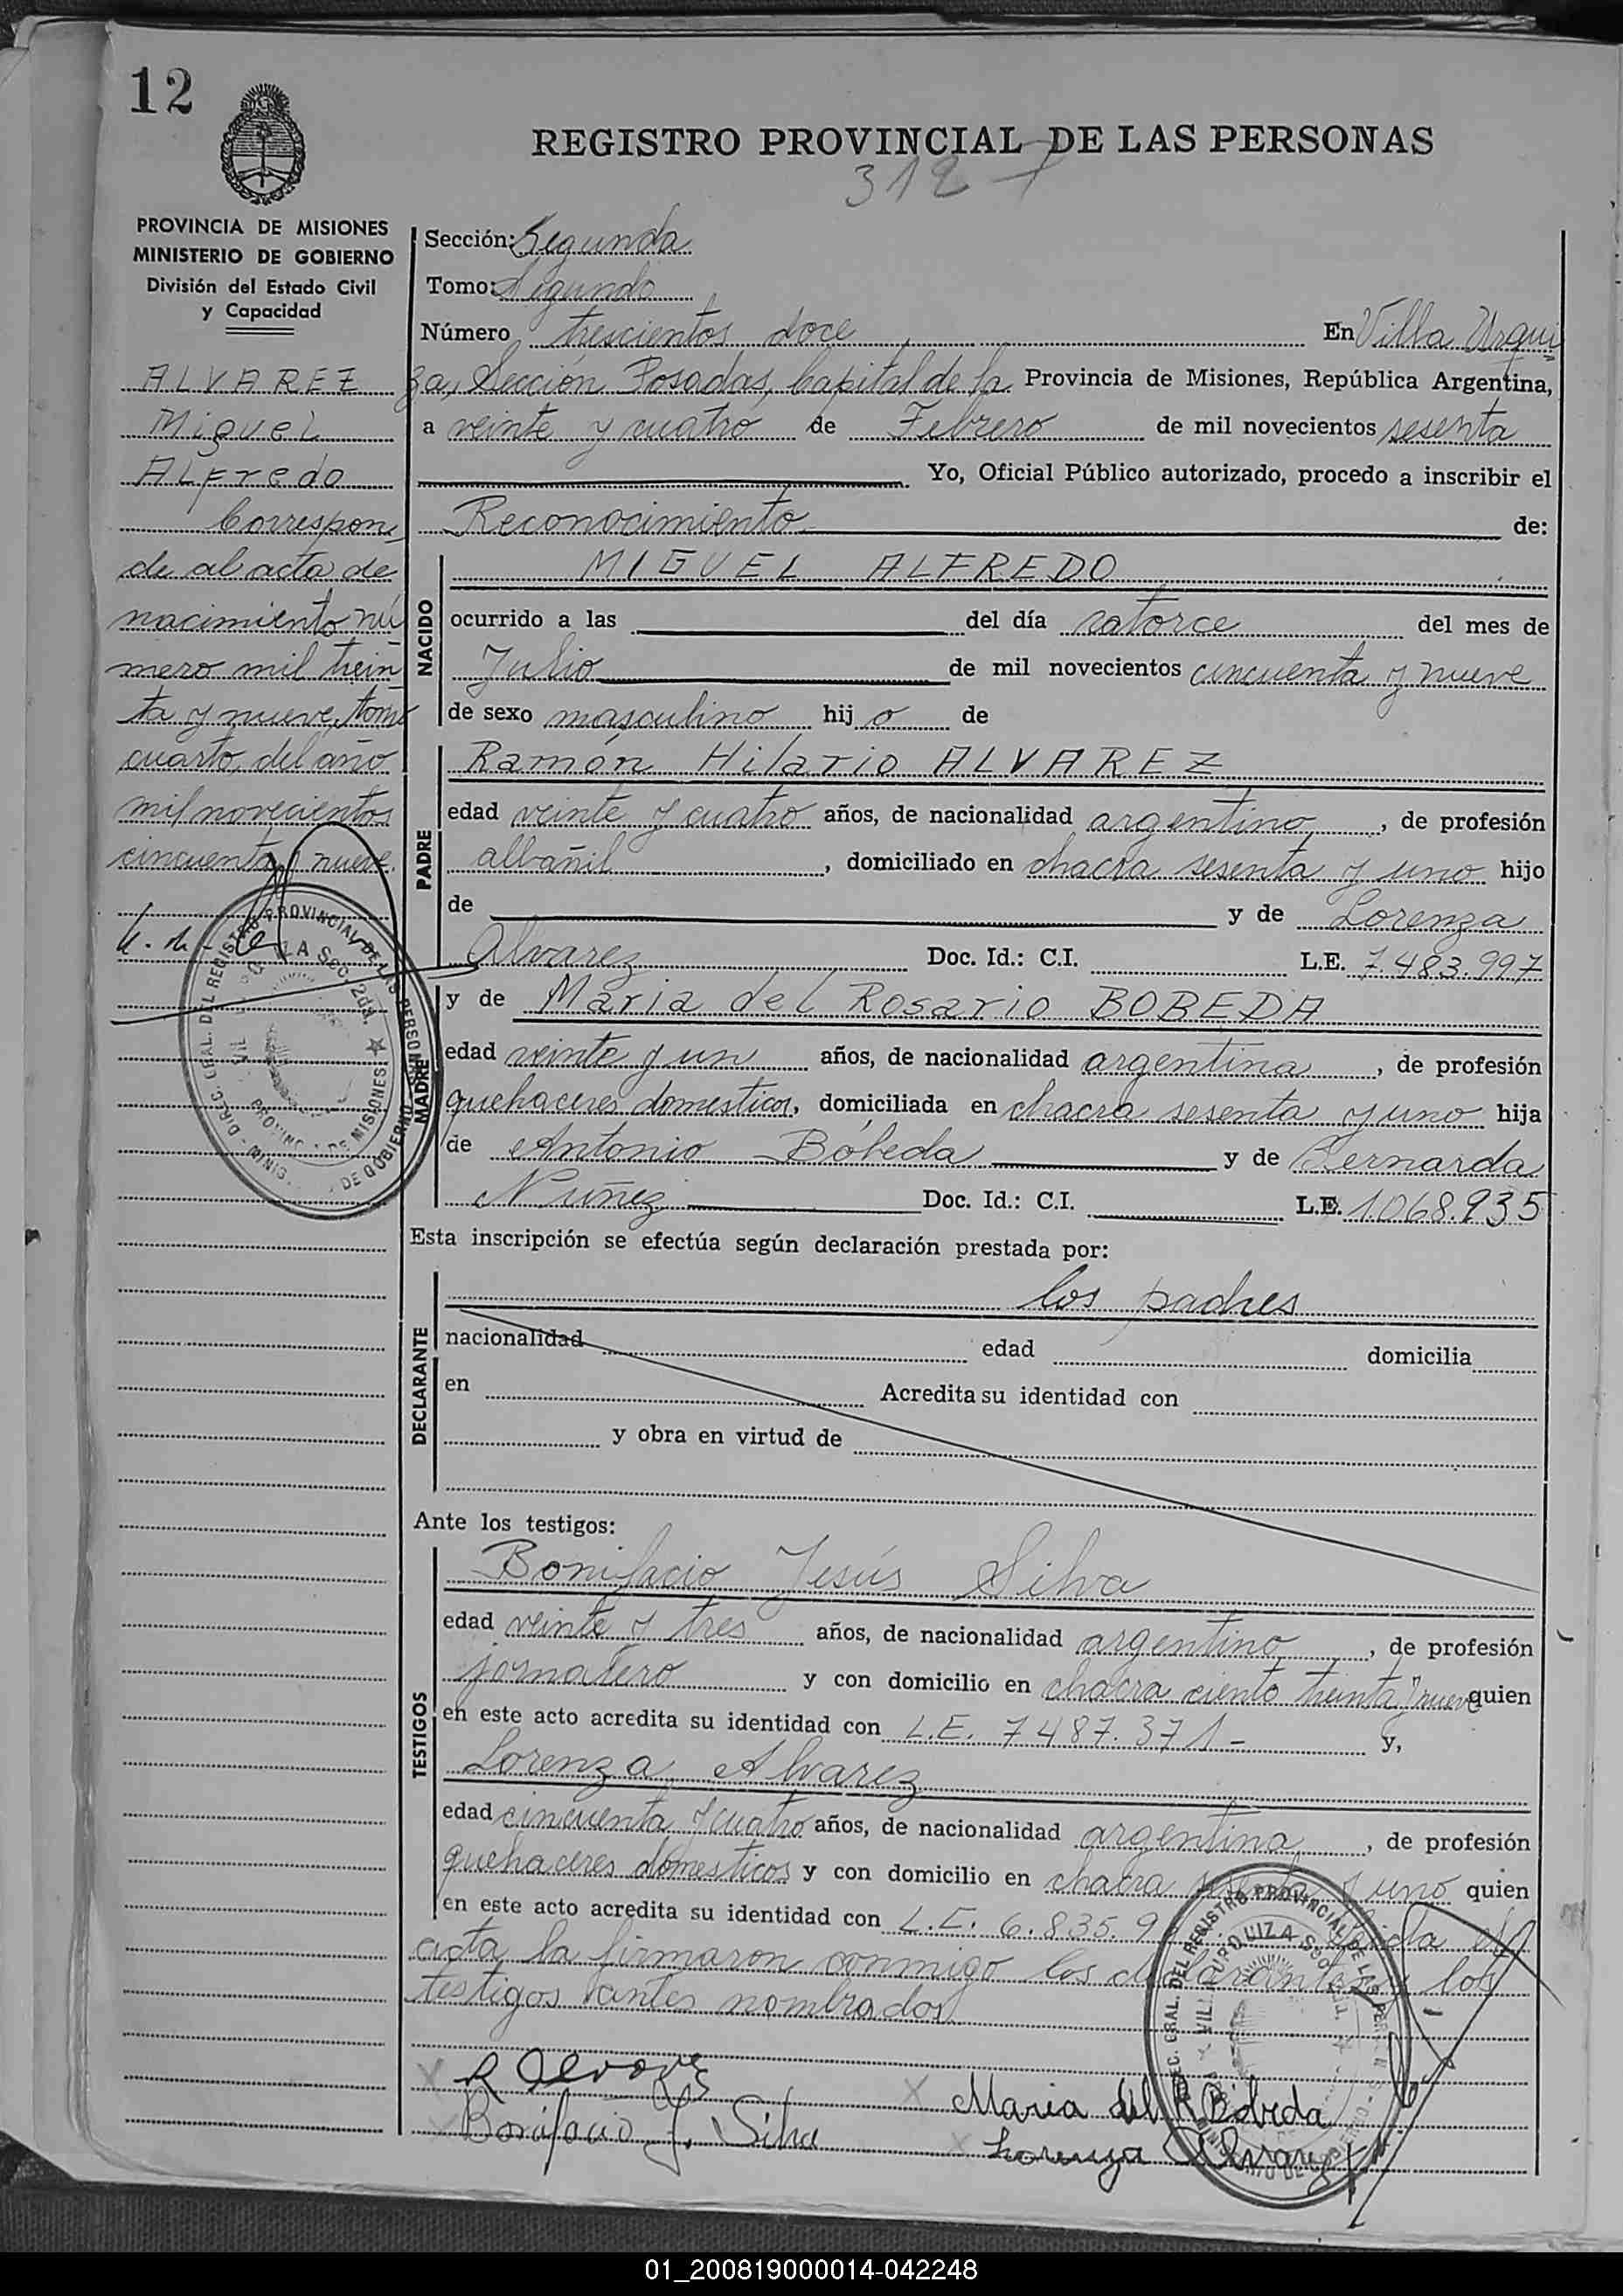 12
REGISTRO PROVINCIAL DE LAS PERSONAS
312
PROVINCIA DE MISIONES
MINISTERIO DE GOBIERNO
División del Estado Civil
y Capacidad
ALVAREZ
Miguel
ALFredo
Correspon
de al acta de
nacimiento nú
mero mil trein
ta y nueve, tomo
cuarto, del año
mil novecientos
cincuenta y nueve.
Sección: Segunda
Tomo: Segundo
Número trescientos doce En Villa Urqui
za, Sección Posadas, Capital de la Provincia de Misiones, República Argentina,
a veinte y cuatro de Febrero de mil novecientos sesenta
Yo, Oficial Público autorizado, procedo a inscribir el
Reconocimiento de:
NACIDO
MIGUEL ALFREDO
ocurrido a las del día catorce del mes de
Julio de mil novecientos cincuenta y nueve
de sexo masculino hijo de
PADRE
Ramón Hilario ALVAREZ
edad veinte y cuatro años, de nacionalidad argentino, de profesión
albañil, domiciliado en chacra sesenta y uno hijo
de y de Lorenza
Alvarez Doc. Id.: C.I. L.E. 7.483.997
MADRE
y de María del Rosario BOBEDA
edad veinte y un años, de nacionalidad argentina, de profesión
quehaceres domesticos, domiciliada en chacra sesenta y uno hija
de Antonio Bóbeda y de Bernarda
Nuñez Doc. Id.: C.I. L.E. 1.068.935
Esta inscripción se efectúa según declaración prestada por:
DECLARANTE
los padres
nacionalidad edad domicilia
en Acredita su identidad con
y obra en virtud de
Ante los testigos:
TESTIGOS
Bonifacio Jesús Silva
edad veinte y tres años, de nacionalidad argentino, de profesión
jornalero y con domicilio en chacra ciento treinta y nueve quien
en este acto acredita su identidad con L.E. 7487.371 - y,
Lorenza Alvarez
edad cincuenta y cuatro años, de nacionalidad argentina, de profesión
quehaceres domesticos y con domicilio en chacra sesenta y uno quien
en este acto acredita su identidad con L.E. 6.835.9 Leida el
acta la firmaron conmigo los declarantes y los
testigos antes nombrados
R Alvarez
Maria del R Bóbeda
Bonifacio J. Silva
Lorenza Alvarez
01_200819000014-042248